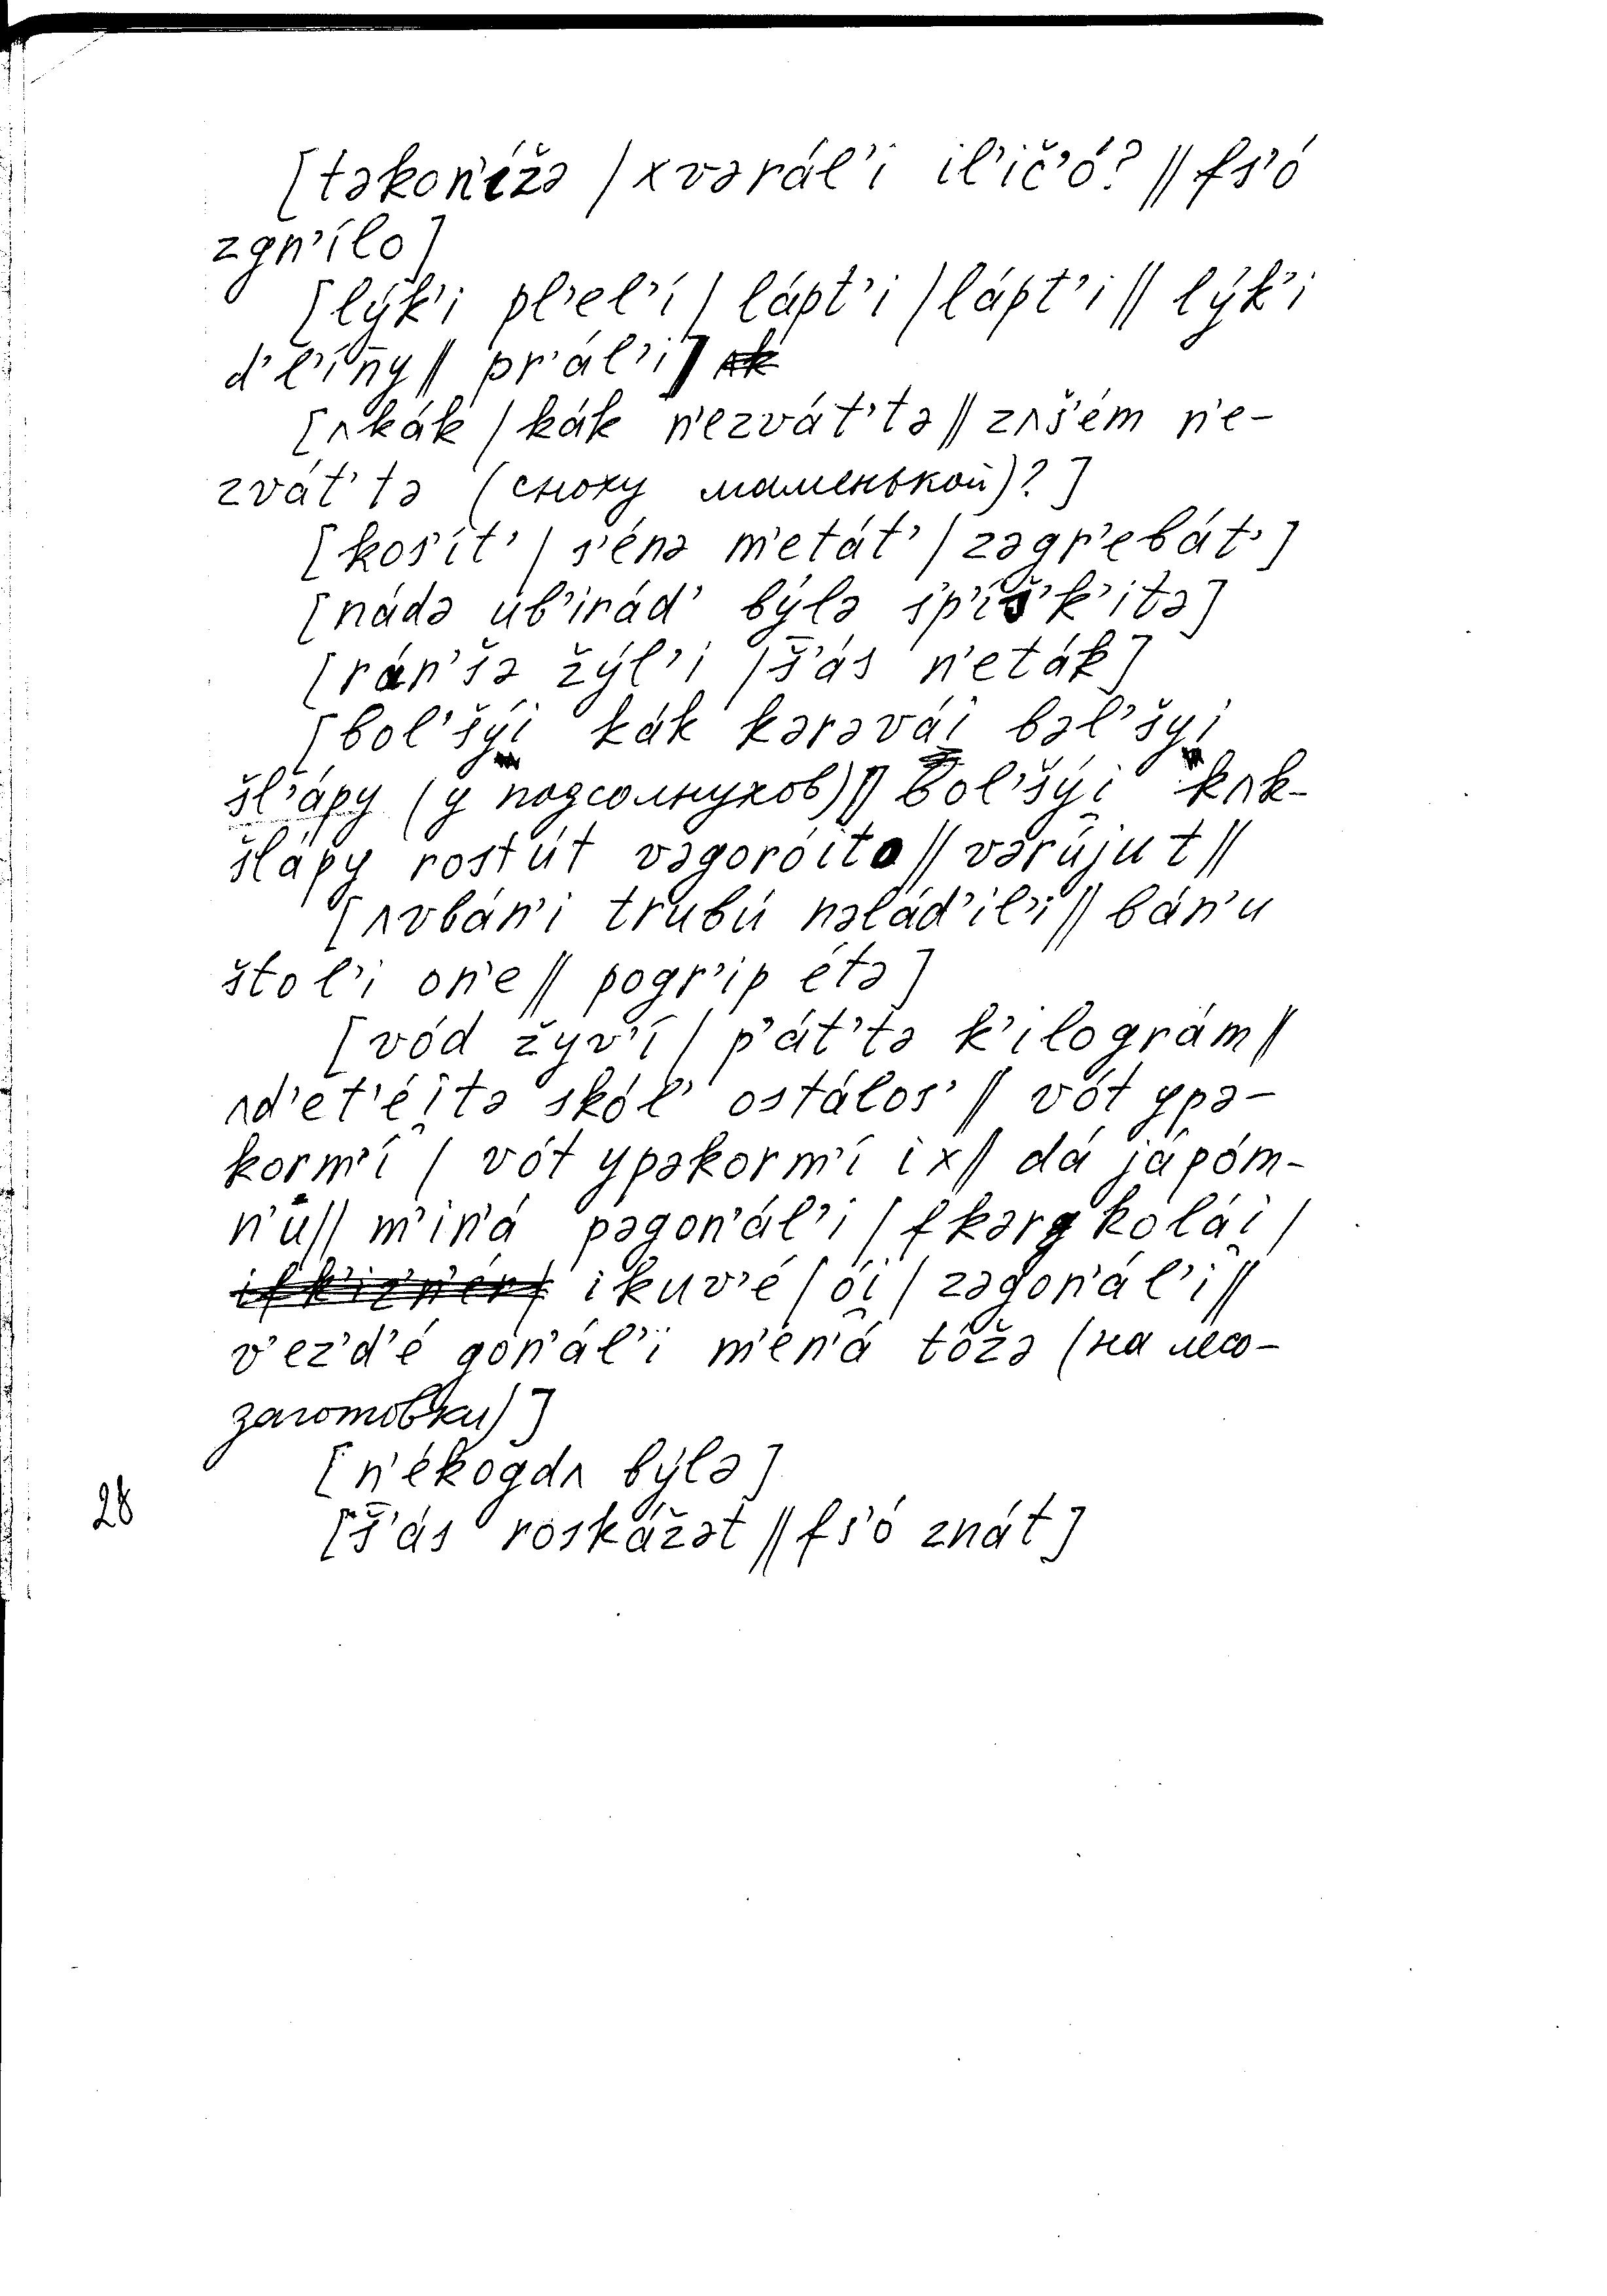 [təkon’éžə / xvərál’i il’ič’ó? // fs’ó
zgn’ílo]
[lýk’i pl’el’í / lápt’i / lápt’i // lýk’i
d’l’ín̄y // pr’ál’i]
[ʌkák / kák n’ezvát’tə // zʌš’ém n’e-
zvát’tə (сноху маменькой)?]
[kos’ít’ / s’énə m’etát’ / zəgr’ebát’]
[nádə ub’irád’ býlə s’p’íš’k’itə]
[rán’šə žýl’i / š̄’ás n’eták]
[bol’šýi̯ kák kərəvái̯ bəl’šyi̯
šl’ápy (у подсолнухов) // bol’šýi̯ kʌk-
šlápy rostút vəgorói̯tə // vərújut //
[ʌvbán’i trubú nəlád’il’i // bán’u
štol’i on’e // pogr’ip étə]
[vód žyv’í / p’át’tə k’ilográm //
ʌd’et’éi̯tə skól’ ostálos’ // vót ypə-
korm’í / vót ypəkorm’í ix // dá japóm-
n’u // m’in’á pəgon’ál’i / fkərgkolái̯ /
ikuv’é / ói̯ / zəgon’ál’i //
v’ez’d’é gon’ál’i m’en’á tóžə (на лесо-
заготовки)]
[n’ékogdʌ býlə]
28
[š̄’ás roskážət // fs’ó znát]